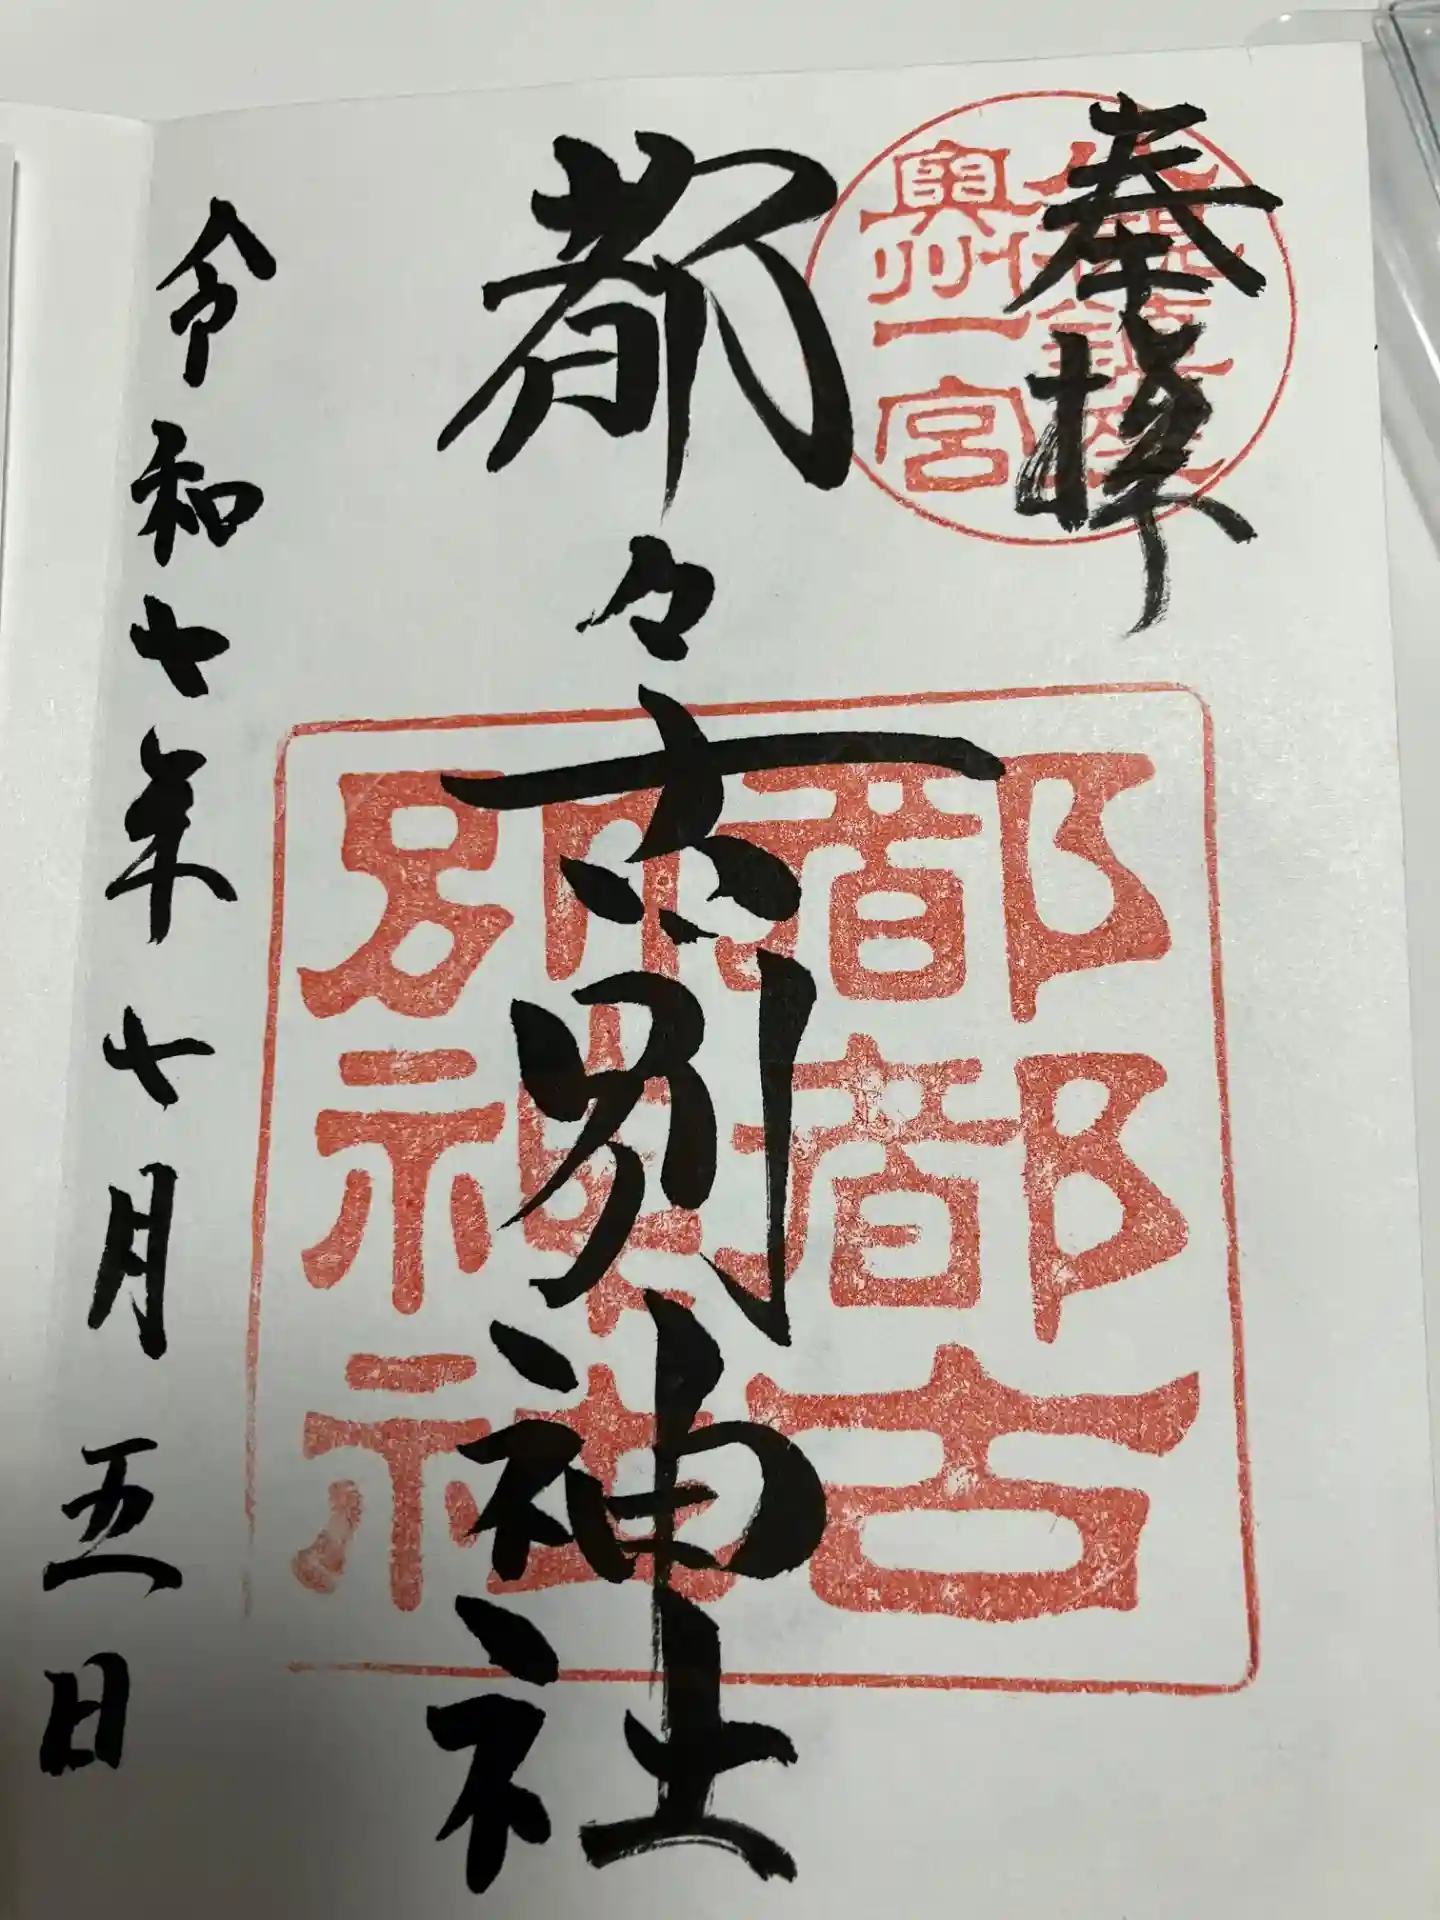 奉拝
鎮座
奥州一宮
都々古別神社
都都古
別神社
令和七年七月五日